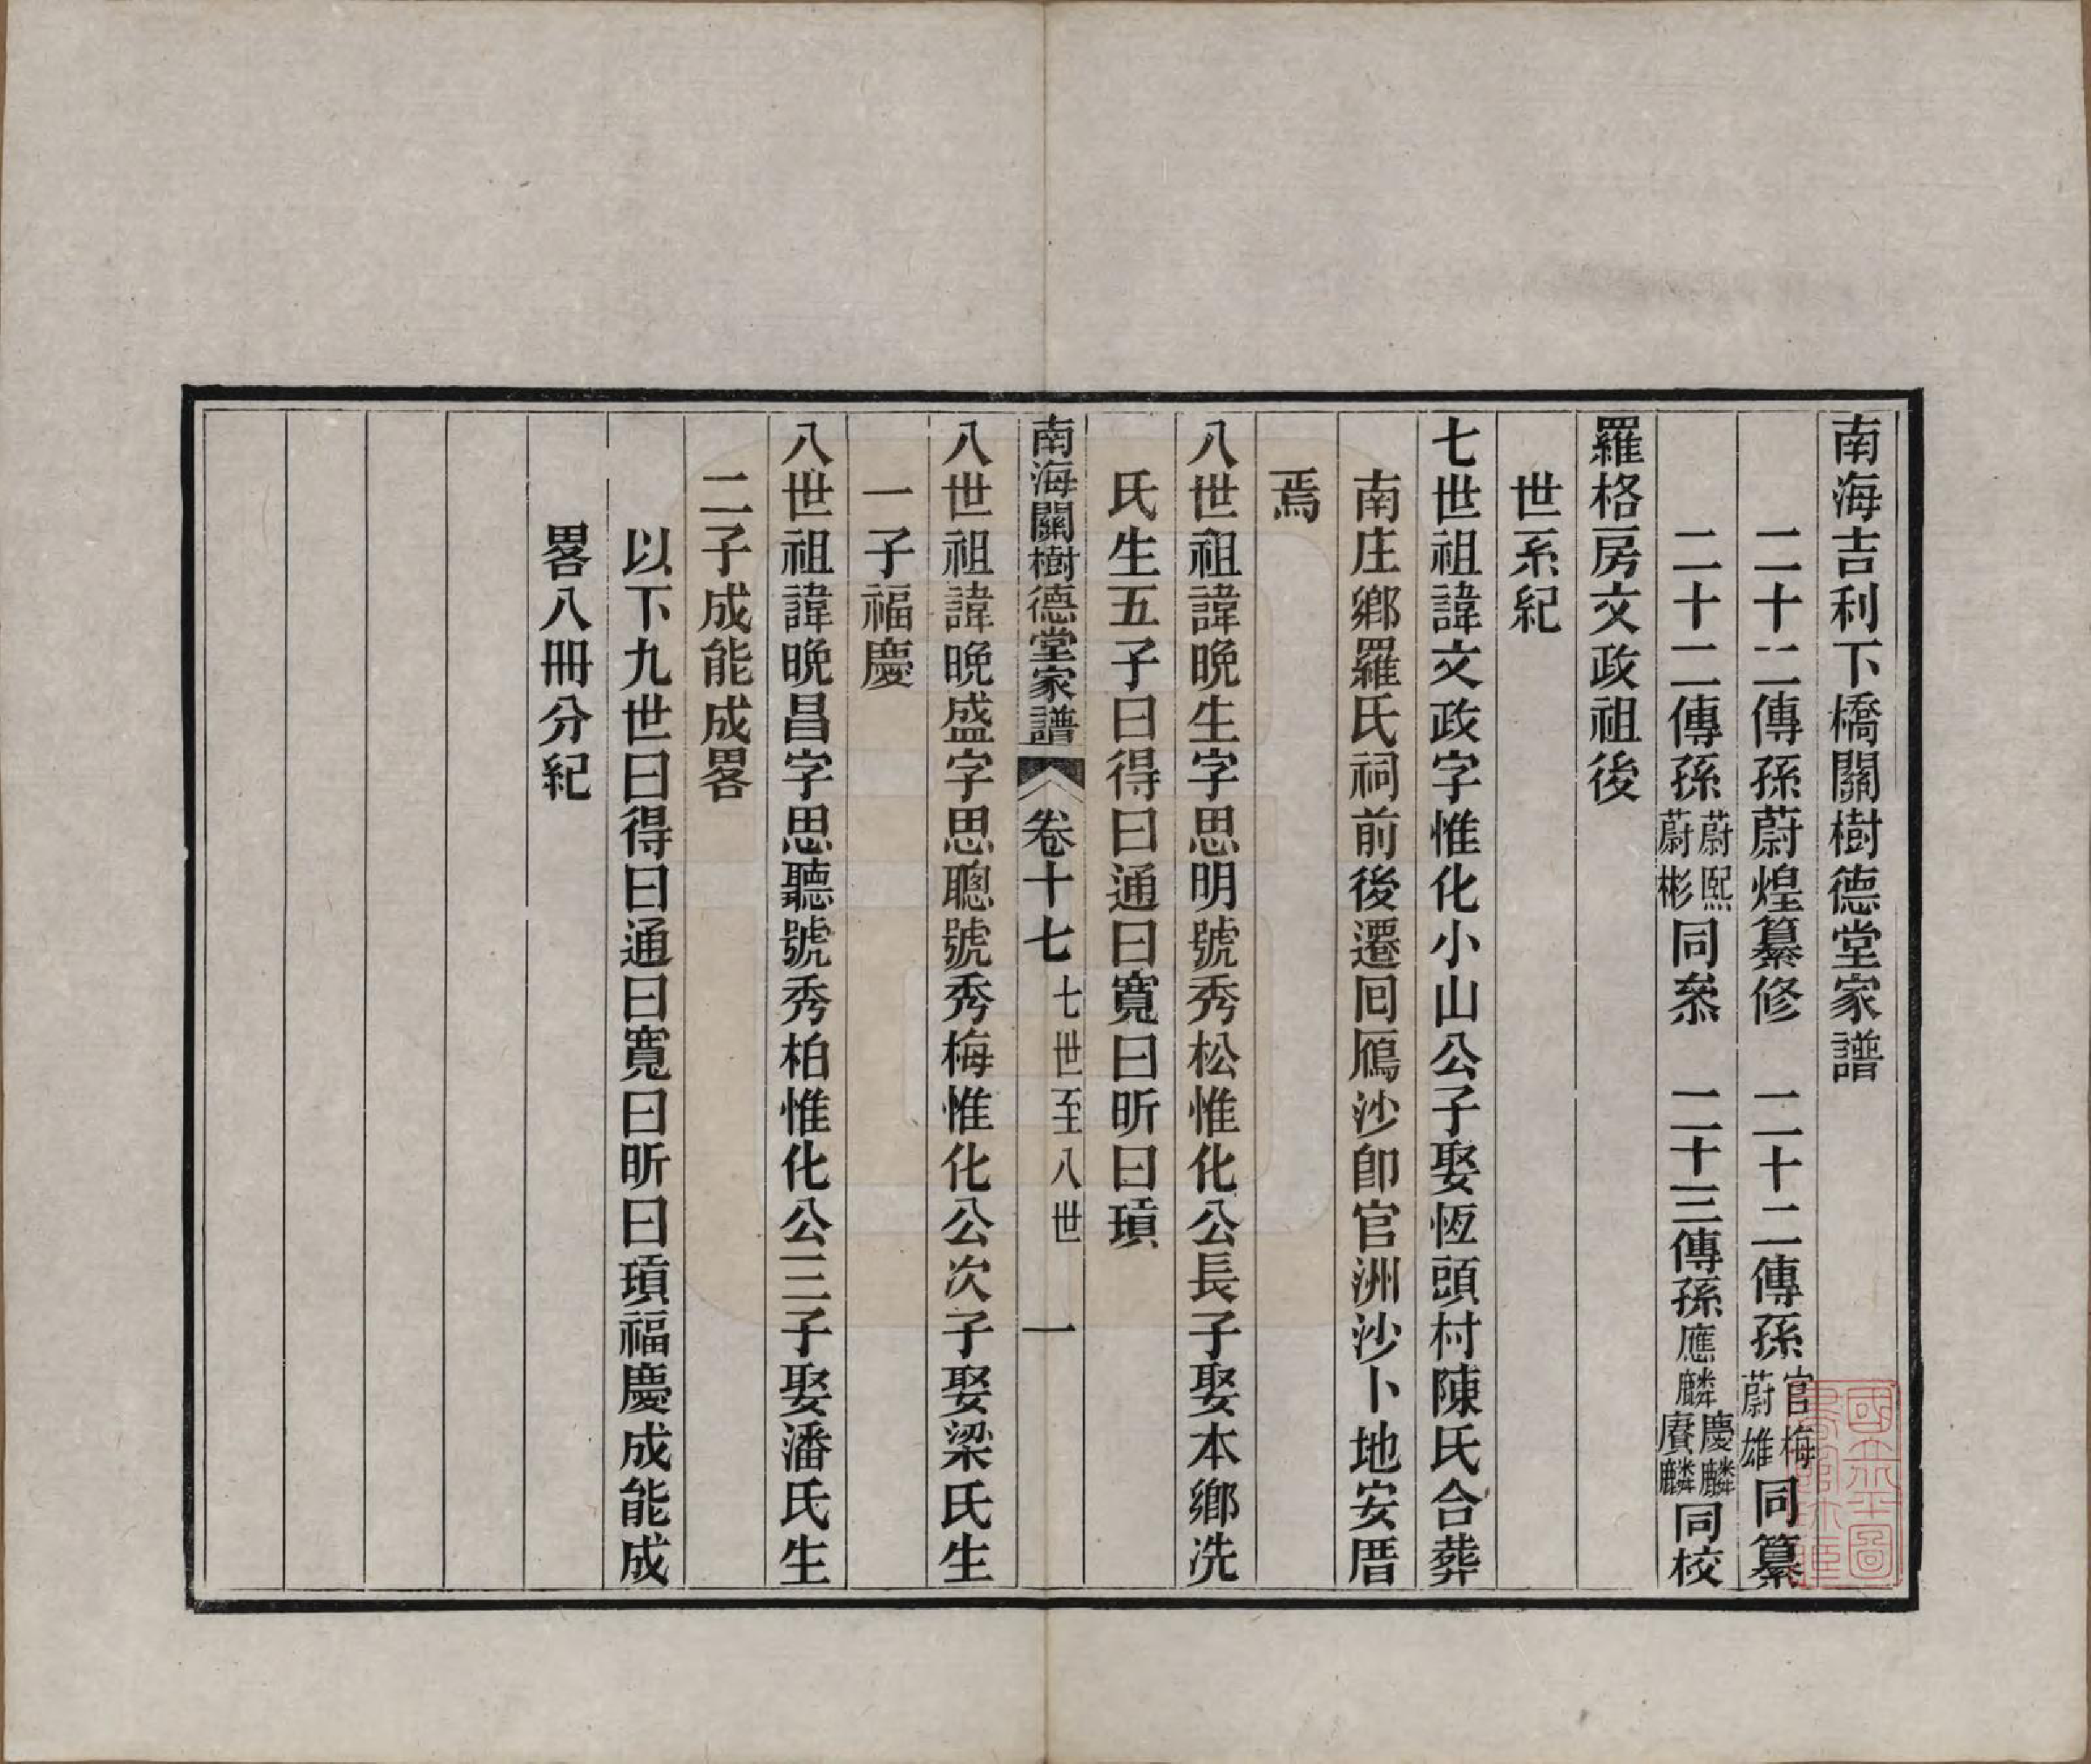 南海吉利下橋關樹德堂家譜
二十二傳孫蔚煌纂修　二十二傳孫官梅蔚雄同纂
二十二傳孫蔚熙蔚彬同叅　二十三傳孫應麟慶麟賡麟同校
羅格房文政祖後
世系紀
七世祖諱文政字惟化小山公子娶恆頭村陳氏合葬
南庄鄉羅氏祠前後遷囘鴈沙卽官洲沙卜地安厝
焉
八世祖諱晚生字思明號秀松惟化公長子娶本鄉冼
氏生五子曰得曰通曰寬曰昕曰瑱
南海關樹德堂家譜　卷十七　七世至八世　一
八世祖諱晚盛字思聰號秀梅惟化公次子娶梁氏生
一子福慶
八世祖諱晚昌字思聽號秀柏惟化公三子娶潘氏生
二子成能成畧
以下九世曰得曰通曰寬曰昕曰瑱福慶成能成
畧八冊分紀
國立北平圖書館收藏